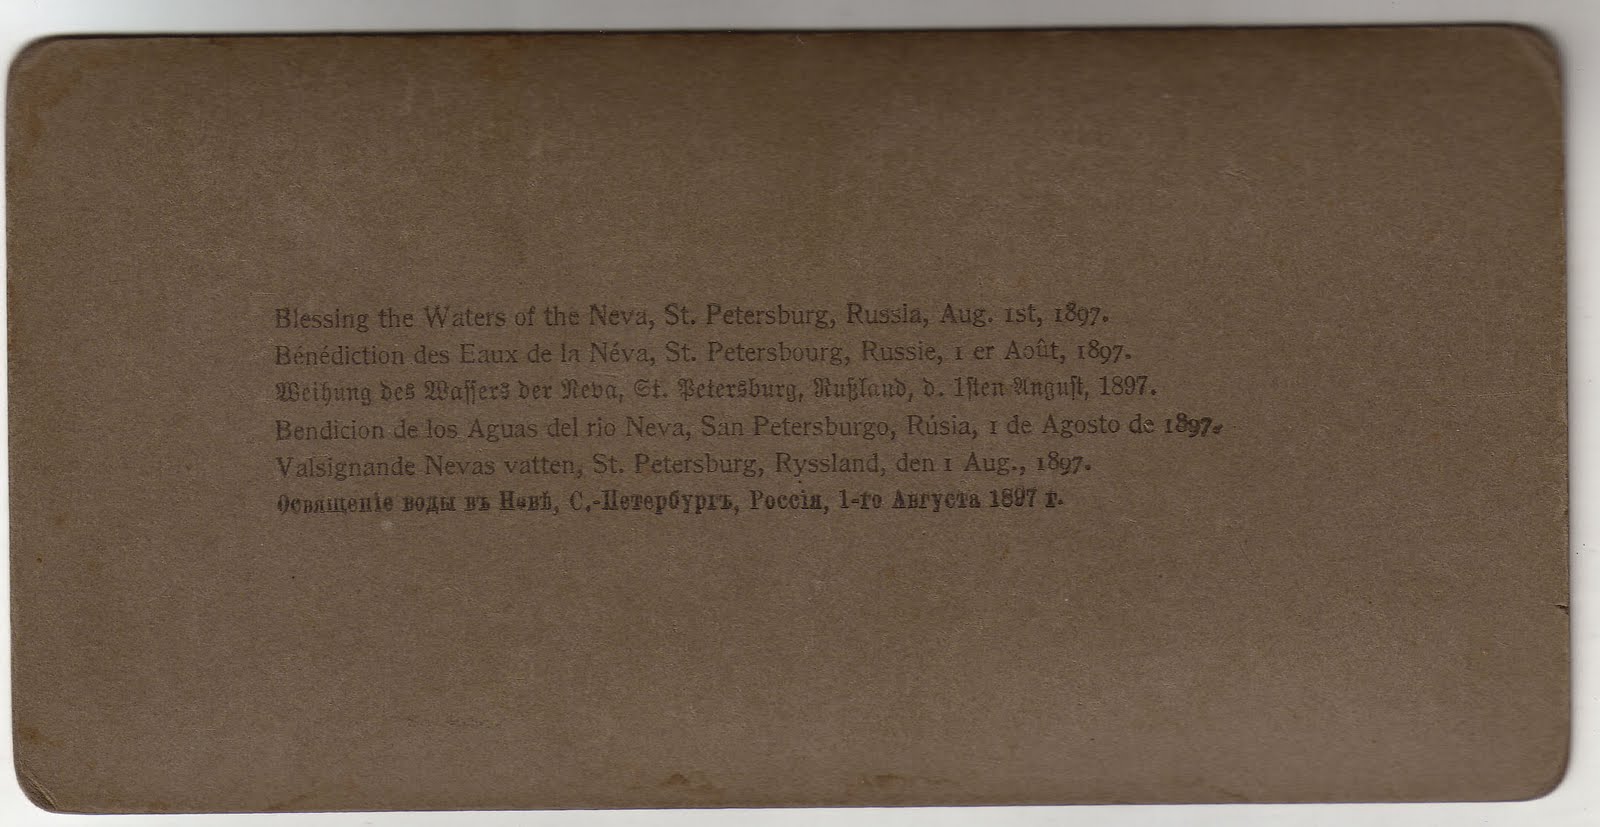 Blessing the Waters of the Neva, St. Petersburg, Russia, Aug. 1st, 1897.
Bénédiction des Eaux de la Néva, St. Petersbourg, Russie, 1 er Août, 1897.
Weihung des Wassers der Neva, St. Petersburg, Rußland, d. 1sten August, 1897.
Bendicion de los Aguas del rio Neva, San Petersburgo, Rúsia, 1 de Agosto de 1897.
Valsignande Nevas vatten, St. Petersburg, Ryssland, den 1 Aug., 1897.
Освященіе воды въ Невѣ, С.-Петербургъ, Россія, 1-го Августа 1897 г.